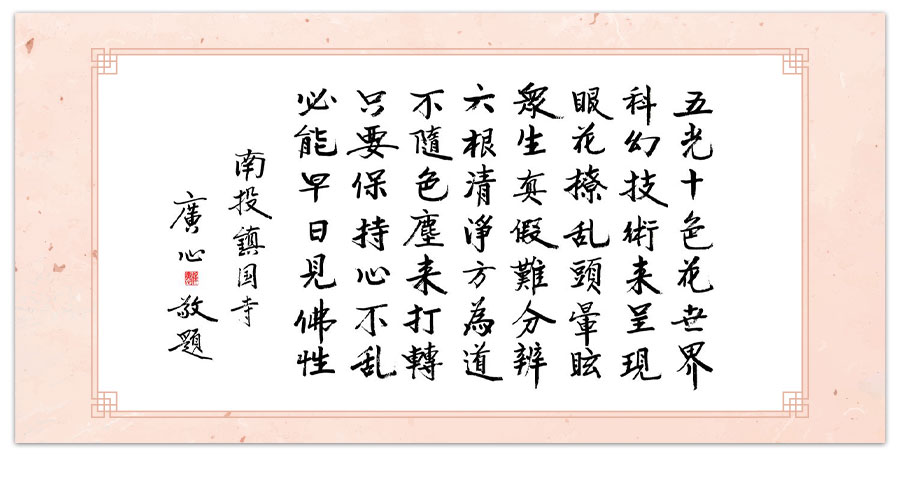 五光十色花世界
科幻技術来呈現
眼花撩乱頭暈眩
衆生真假難分辨
六根清淨方為道
不隨色塵来打轉
只要保持心不乱
必能早日見佛性
南投鎮国寺
廣心敬題